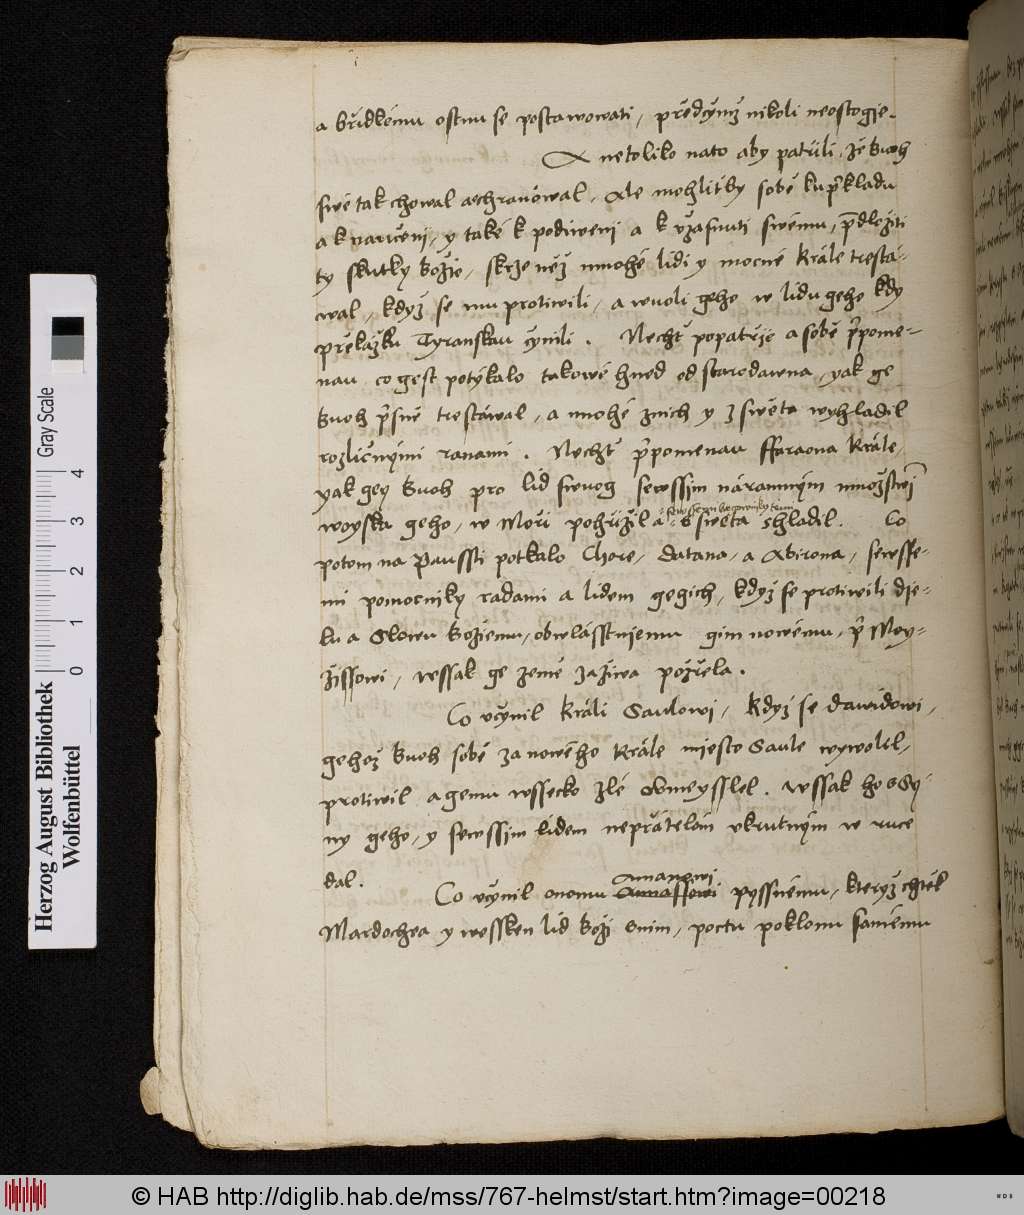 a břidkému ostnu se postawowati, předcýnž nikoli neostogje.
A netoliko nato aby patřili, že Buoh
swé tak chowal a ochranówal, Ale mohlitby sobě ku přkladu
a k naučeni, y také k podiweni a k užasnuti swému, předložiti
ty skutky Božie, skrze něž mnohé lidi y mocné Krále tresta-
wal, když se mu protiwili, a wuoli geho w lidu geho kdy
překážku Tyranskau cýnili. Nechť popatřie a sobě přpome-
nau co gest potýkalo takowé hned od starodawna, yak ge
Buoh přsně trestáwal, a mnohé znich y z swěta wyhladil
rozličnými ranami. Nechť přpomenau ffaraona Krále,
yak gey Buoh pro lid swuog sewssim náramným množstwi
woyska geho, w Moři pohřižil a s swěta shladil. Co
potom na Paussti potkalo Chore, Datana, a Abirona, sewsse-
mi pomocniky radami a lidem gegich, když se protiwili dje-
lu a Slowu Božiemu, obwlásstniemu gim nowému, př Moy-
žissowi, wssak ge země zažiwa požřela.
Co učýnil Králi Saulowi, když se Dawidowi,
gehož Buoh sobě za nowého Krále miesto Saule wywolil,
protiwil a gemu wssecko zlé obmeysslel. wssak ho s Sý-
ny geho, y sewssim lidem nepřátelóm ukrutným w ruce
dal.
Co učýnil onomu Amanowi pyssnému, kterýž chtěl
Mardochea y wessken lid Boži snim, poctu poklonu samému
Herzog August Bibliothek
Wolfenbüttel
0 1 2 3 4
Gray Scale
© HAB http://diglib.hab.de/mss/767-helmst/start.htm?image=00218